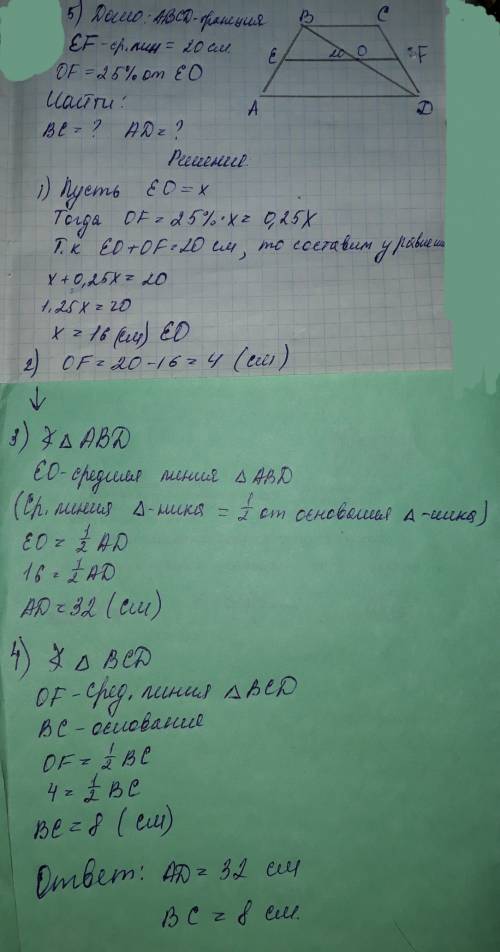 5) Дано: ABCD-трапеция
EF-ср.лин = 20 см
OF = 25% от EO
Найти:
BC = ? AD = ?
B C
E 20 O F
A D
Решение
1) Пусть EO = x
Тогда OF = 25%·x = 0,25x
Т.к EO+OF=20 см, то составим уравнени
x+0,25x = 20
1,25x = 20
x = 16 (см) EO
2) OF = 20-16 = 4 (см)
↓
3) ∆ ABD
EO-средняя линия ∆ ABD
(Ср. линия ∆-ника = 1/2 от основания ∆-ника)
EO = 1/2 AD
16 = 1/2 AD
AD = 32 (см)
4) ∆ BCD
OF-сред. линия ∆ BCD
BC - основание
OF = 1/2 BC
4 = 1/2 BC
BC = 8 (см)
Ответ: AD = 32 см
BC = 8 см.